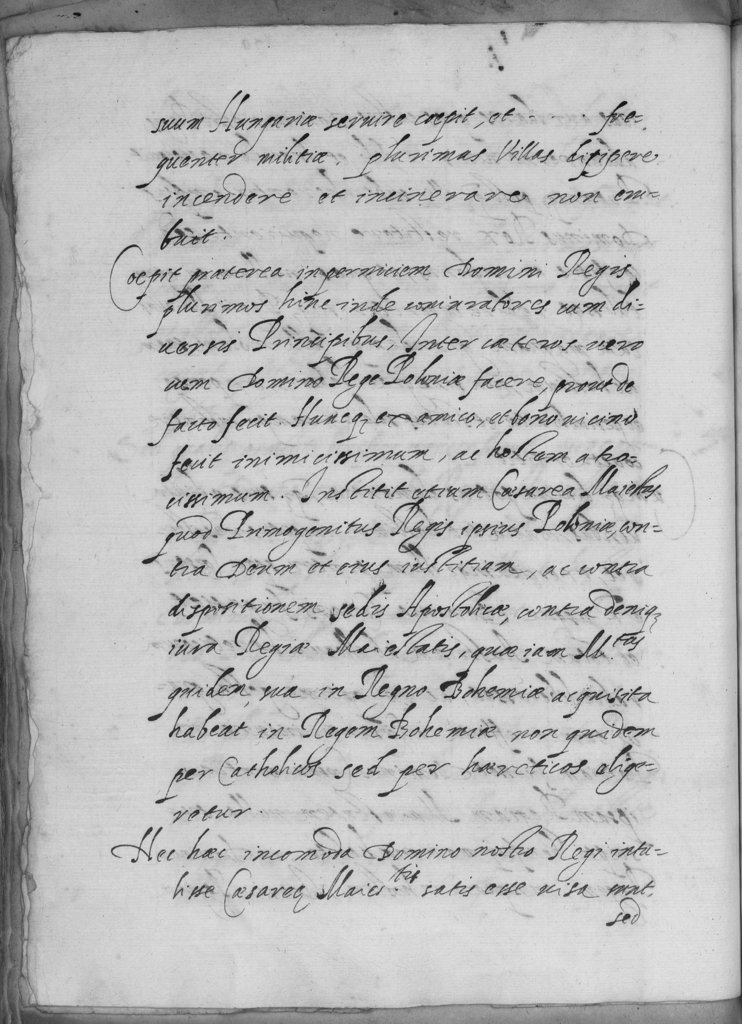 suum Hungariæ seruire cœpit, et fre-
quenter militiæ plurimas Villas diripere
incendere et incinerare non eru-
buit.
Coepit præterea in perniciem Domini Regis
plurimos hinc inde coniuratores cum di-
uersis Principibus, Inter cæteros vero
cum Domino Rege Poloniæ facere, prout de
facto fecit. Huncq; ex amico, et bono uicino
fecit inimicissimum, ac hostem atro-
cissimum. Institit etiam Cæsarea Maiestas
quod Primogenitus Regis ipsius Poloniæ, con-
tra Deum et eius iustitiam, ac contra
dispositionem sedis Apostolicæ, contra deniq;
iura Regiæ Maiestatis, quæ iam M.tas
quidem sua in Regno Bohemiæ acquisita
habeat in Regem Bohemiæ non quidem
per Catholicos sed per hæreticos elige-
retur.
Nec hæc incomoda Domino nostro Regi intu-
lisse Cæsareę Maies.tis satis esse uisa sunt.
sed